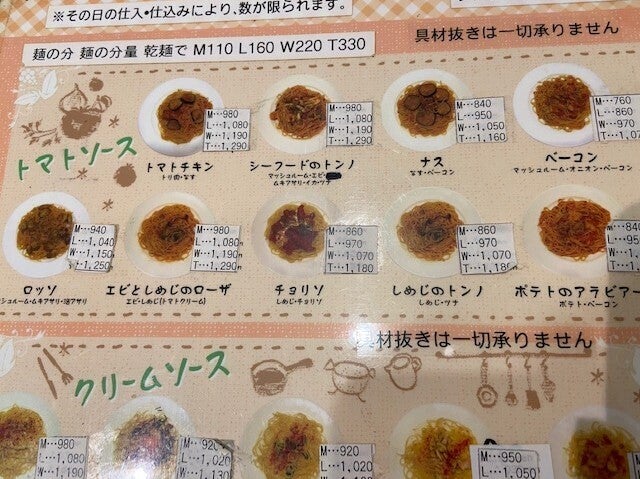 ※その日の仕入・仕込みにより、数が限られます。
麺の分 麺の分量 乾麺で M110 L160 W220 T330
具材抜きは一切承りません
トマトソース
M…980
L…1,080
W…1,190
T…1,290
トマトチキン
トリ肉・なす
M…980
L…1,080
W…1,190
T…1,290
シーフードのトンノ
マッシュルーム・エビ・
ムキアサリ・イカ・ツナ
M…840
L…950
W…1,050
T…1,160
ナス
なす・ベーコン
M…760
L…860
W…970
ベーコン
マッシュルーム・オニオン・ベーコン
M…940
L…1,040
W…1,150
T…1,250
ロッソ
M…980
L…1,080
W…1,190
T…1,290
エビとしめじのローザ
エビ・しめじ(トマトクリーム)
M…860
L…970
W…1,070
T…1,180
チョリソ
しめじ・チョリソ
M…860
L…970
W…1,070
T…1,180
しめじのトンノ
しめじ・ツナ
ポテトのアラビアー
ポテト・ベーコン
具材抜きは一切承りません
クリームソース
M…980
L…1,080
W…1,190
M…920
L…1,020
W…1,130
M…920
L…1,020
W…1,130
M…950
L…1,050